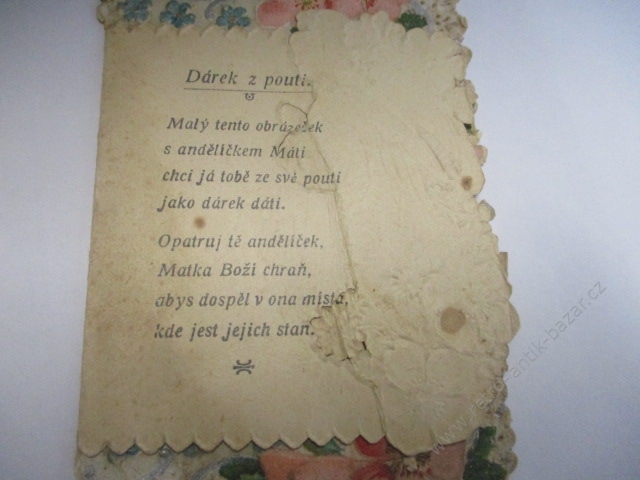 Dárek z pouti.
Malý tento obrázeček
s andělíčkem Máti
chci já tobě ze své pouti
jako dárek dáti.
Opatruj tě andělíček,
Matka Boží chraň,
abys dospěl v ona místa,
kde jest jejich stan.